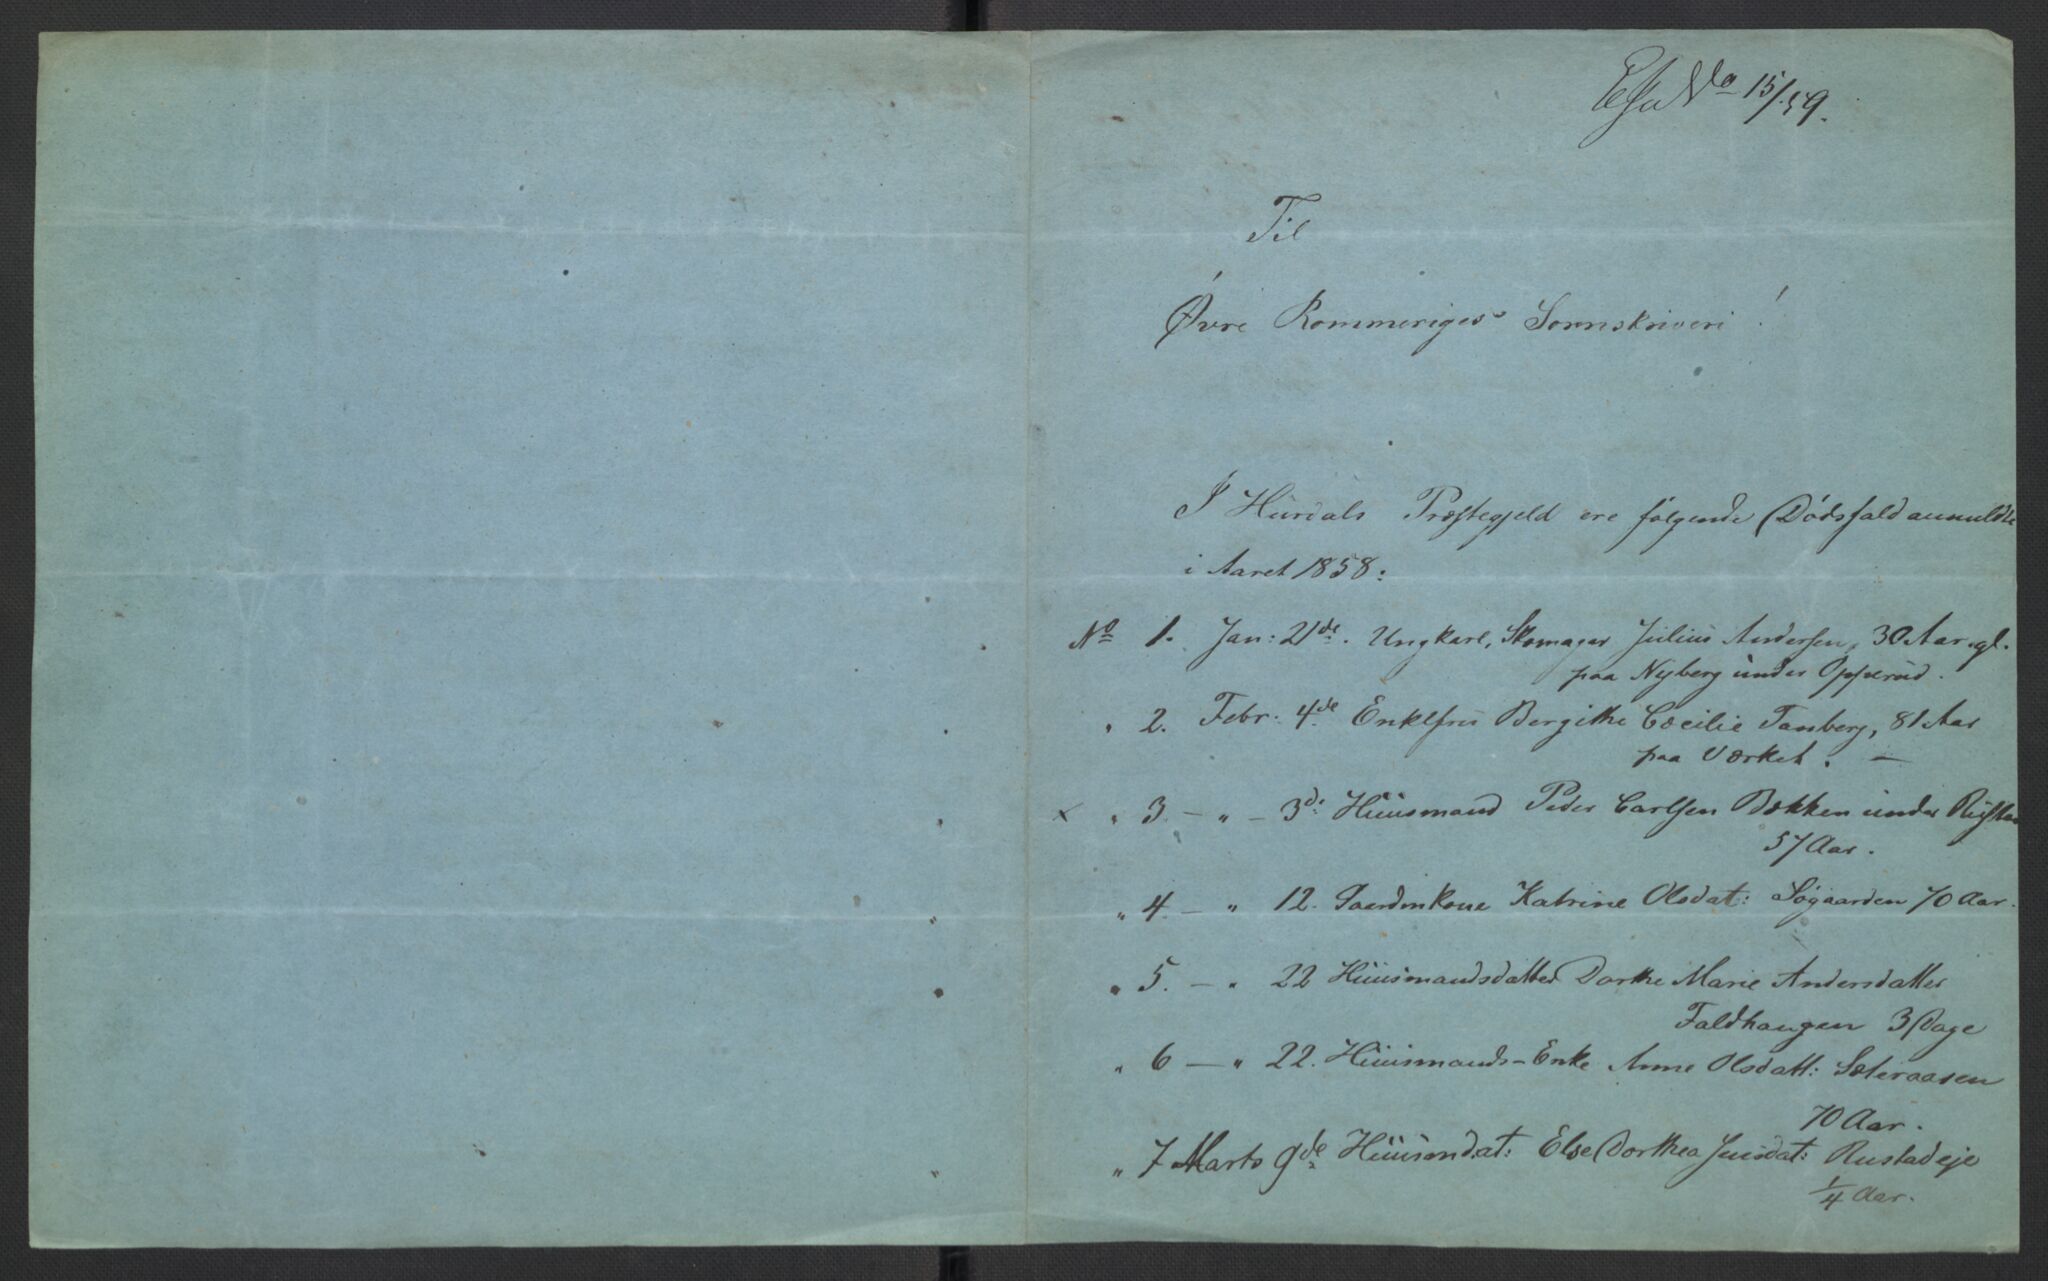 No 15/59.
Til
Øvre Rommeriges Sornskriveri!
I Hurdals Præstegjeld ere følgende Dødsfald anmeldte
i Aaret 1858:
No 1. Jan: 21de. Ungkarl, Skomager Julius Andersen, 30 Aar gl.
paa Nyberg under Opperud.
" 2. Febr: 4de Enkefru Bergithe Cæcilie Tanberg, 81 Aar
paa Værket. —
x " 3 — " — 3de Huusmand Peder Carlsen Bækken under
57 Aar.
" 4 — " 12. Gaardmkone Katrine Olsdat: Søgaarden 70 Aar.
" 5. — " 22 Huusmandsdatter Dorthe Marie Andersdatter
Faldhaugen 3 Dage
" 6 — " 22. Huusmands-Enke Anne Olsdatt: Sæteraasen
70 Aar.
" 7 Marts 9de Huusmdat: Else Dorthea Jensdat: Rustadeje
1/4 Aar.